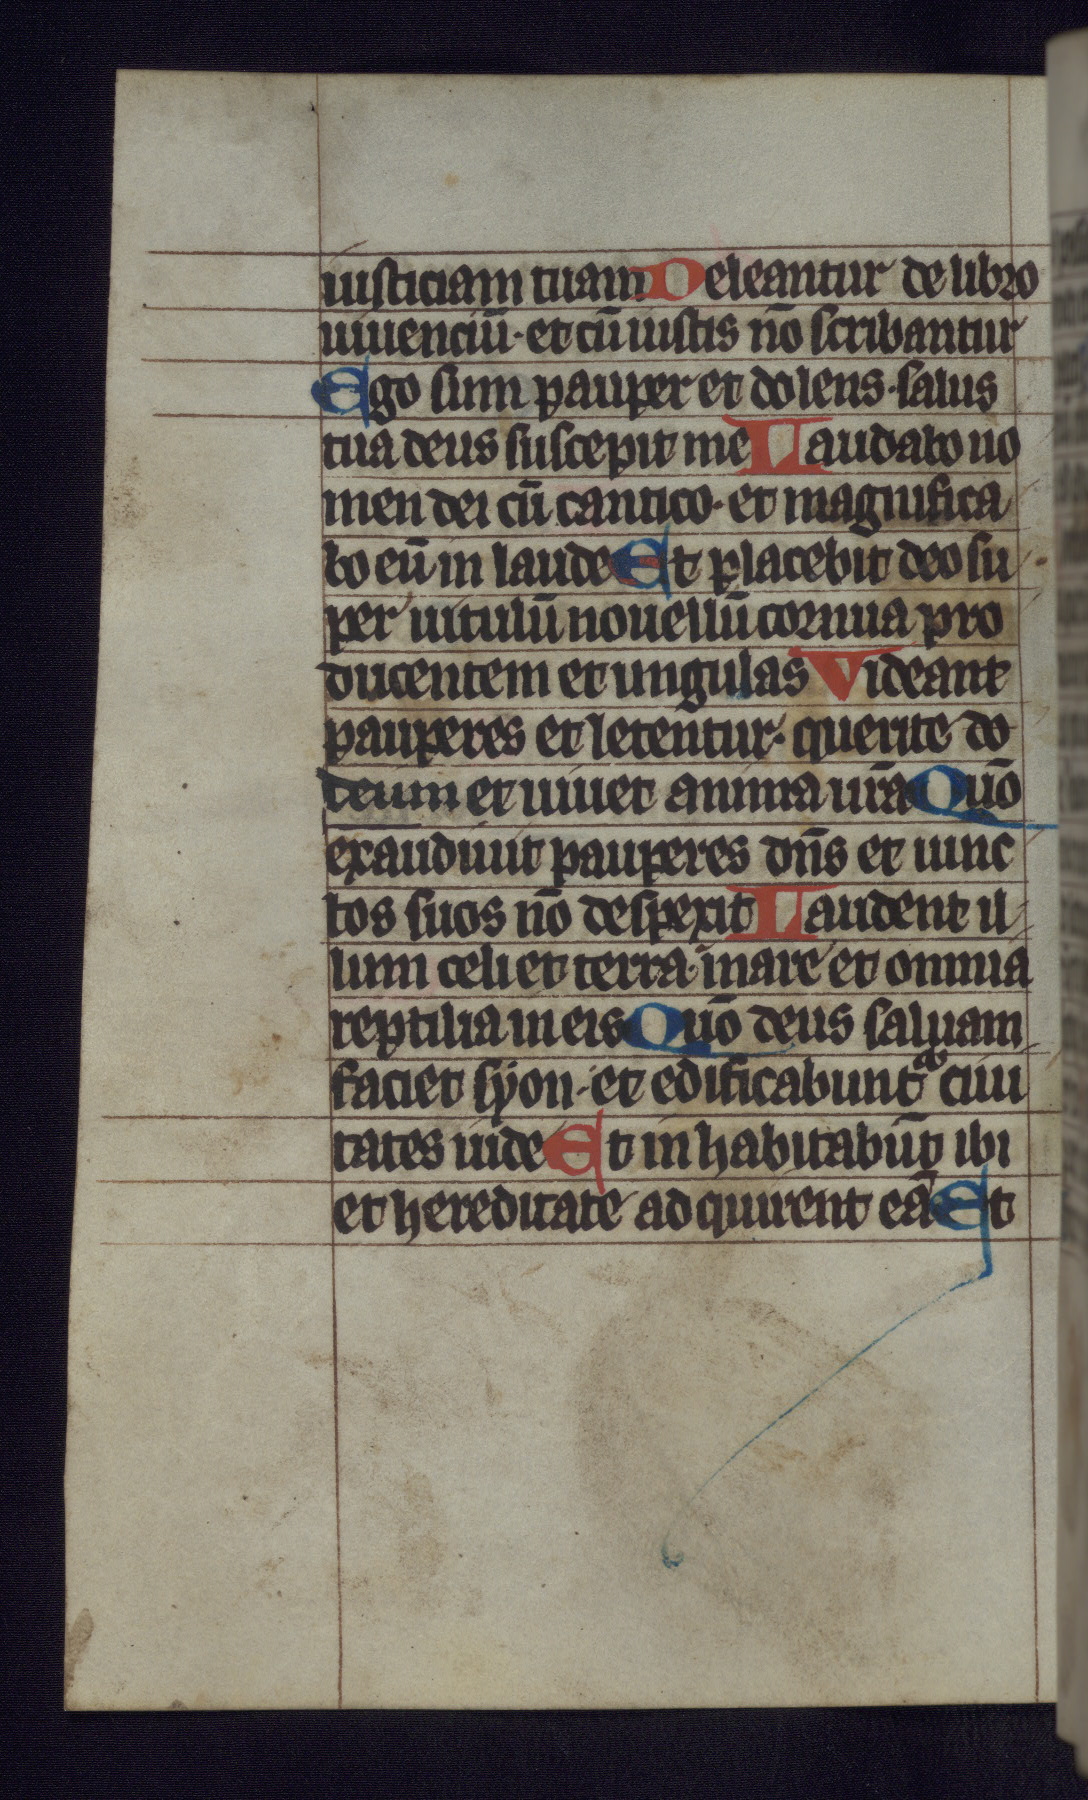 iusticiam tuam Deleantur de libro
uiuenciū · et cū iustis nō scribantur
Ego sum pauper et dolens · salus
tua deus suscepit me Laudabo no
men dei cū cantico · et magnifica
bo eū in laude Et placebit deo su
per uitulū nouellū cornua pro
ducentem et ungulas Videant
pauperes et letentur · querite do
deum et uiuet anima ur̄a Quō
exaudiuit pauperes dn̄s et uinc
tos suos nō despexit Laudent il
lum celi et terra · mare et omnia
reptilia in eis Quō deus saluam
faciet syon · et edificabunt᷑ ciui
tates iude Et inhabitabūt ibi
et hereditate adquirent eā Et